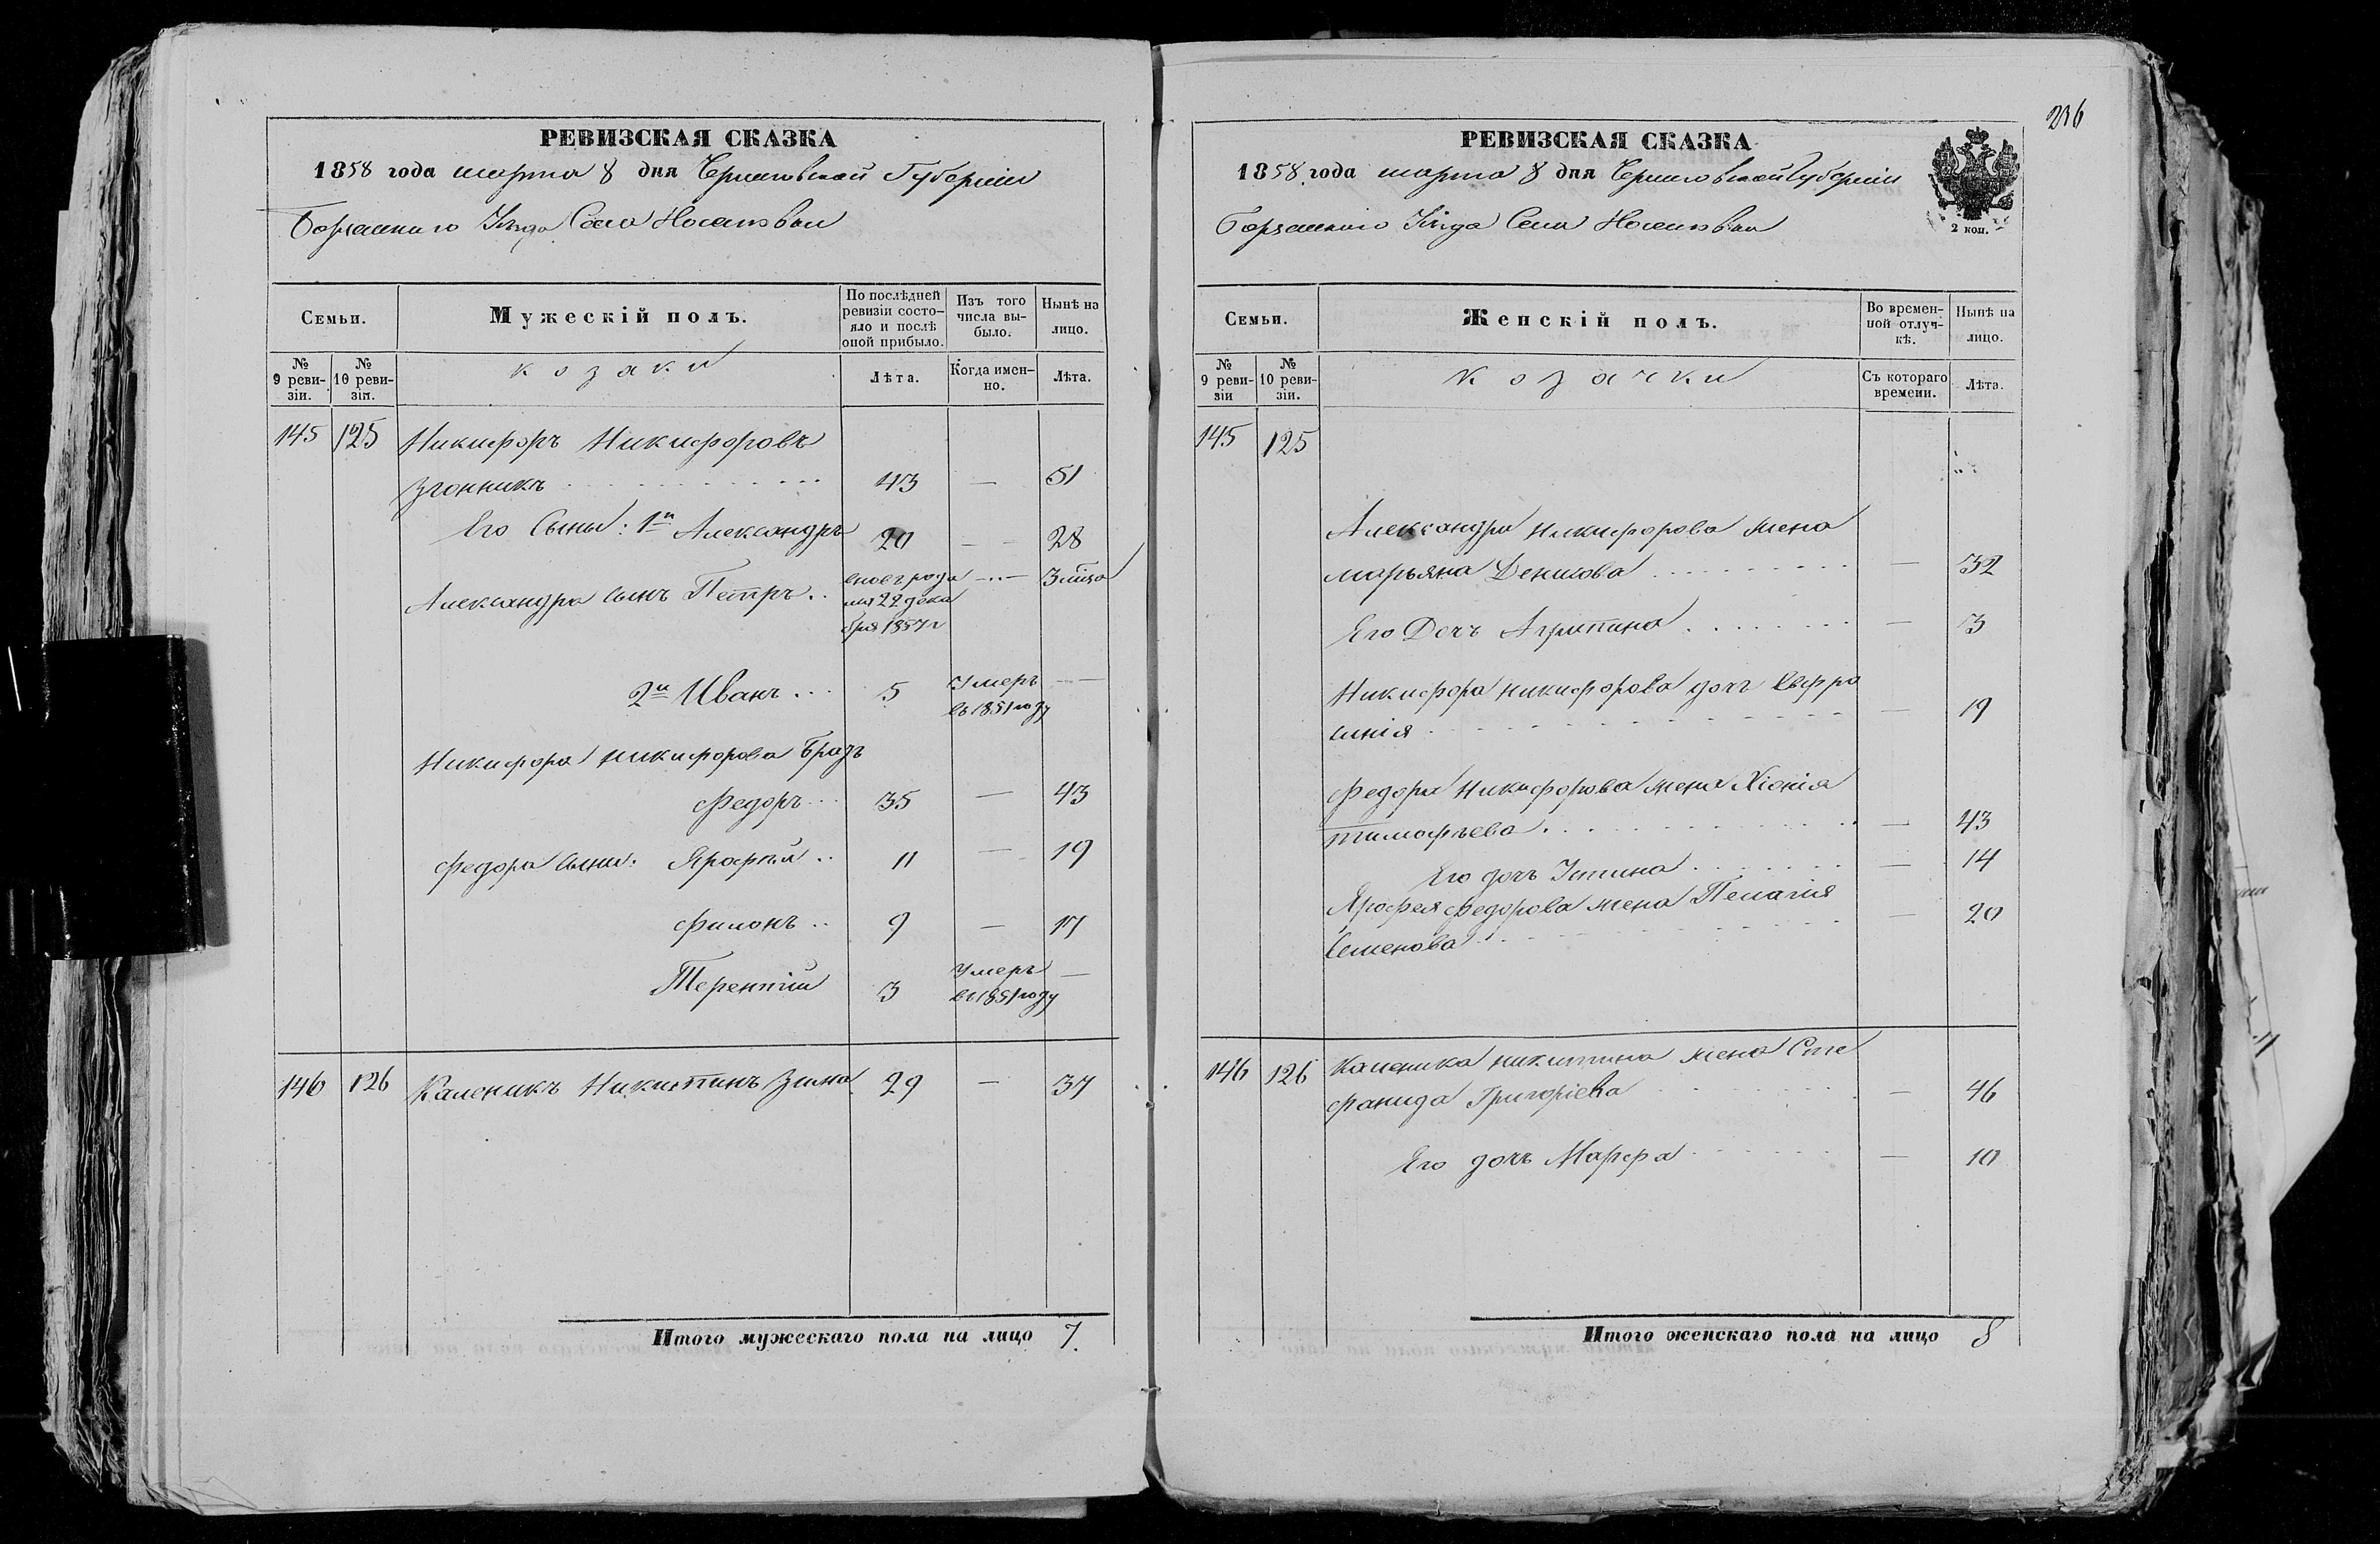 236
РЕВИЗСКАЯ СКАЗКА
1858 года марта 8 дня Черниговской Губерніи
Борзенскаго Уѣзда Села Носеловки
Семьи.
Мужескій полъ.
По послѣдней ревизіи состояло и послѣ оной прибыло.
Изъ того числа выбыло.
Нынѣ на лицо.
№ 9 ревизіи.
№ 10 ревизіи.
козаки
Лѣта.
Когда именно.
Лѣта.
145 125 Никифоръ Никифоровъ
Згонникъ 43 — 51
Его Сыны: 1й Александръ 20 — 28
Александра сынъ Петръ вновь рода — 3 мѣса
лся 22 дека
бря 1857 г
2й Иванъ 5 Умеръ —
въ 1851 году
Никифора Никифорова Братъ
Федоръ 35 — 43
Федора сыны: Ярофій 11 — 19
Филонъ 9 — 17
Терентій 3 Умеръ —
въ 1851 году
146 126 Каленикъ Никитинъ Зима 29 — 37
Итого мужескаго пола на лицо 7.
РЕВИЗСКАЯ СКАЗКА
1858 года марта 8 дня Черниговской Губерніи
Борзенскаго Уѣзда Села Носеловки
2 коп.
Семьи.
Женскій полъ.
Во временной отлучкѣ.
Нынѣ на лицо.
№ 9 ревизіи
№ 10 ревизіи.
козачки
Съ котораго времени.
Лѣта.
145 125
Александра Никифорова жена
Марьяна Денисова — 32
Его Дочь Агрипина — 3
Никифора Никифорова дочь Евфро
синія — 19
Федора Никифорова жена Хіонія
Тимофѣева — 43
Его дочь Устина — 14
Ярофея Федорова жена Пелагія
Семенова — 20
146 126 Каленика Никитина жена Сте
фанида Григоріева — 46
Его дочь Марфа — 10
Итого женскаго пола на лицо 8